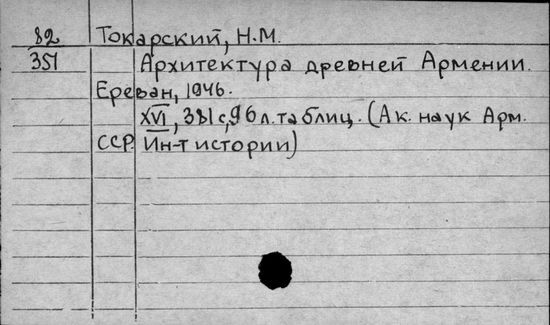 82 Токарский, Н.М.
351 Архитектура древней Армении.
Ереван, 1946.
XVI, 381 с, 96 л. таблиц. (Ак. наук Арм.
ССР. Ин-т истории)